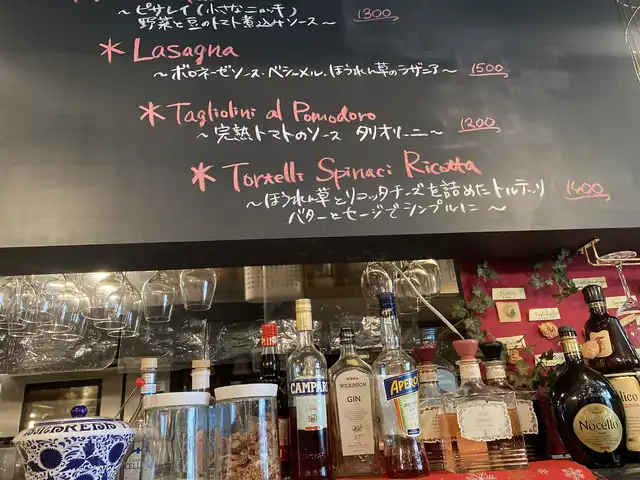 ～ピサレイ(小さなニョッキ)
野菜と豆のトマト煮込みソース～ 1300
* Lasagna
～ボロネーゼソース・ベシャメル・ほうれん草のラザニア～ 1500
* Tagliolini al Pomodoro
～完熟トマトのソース タリオリーニ～ 1200
* Tortelli Spinaci Ricotta
～ほうれん草とリコッタチーズを詰めたトルテッリ 1400
バターとセージでシンプルに～
CAMPARI
WILKINSON
GIN
37°
APEROL
Nocello